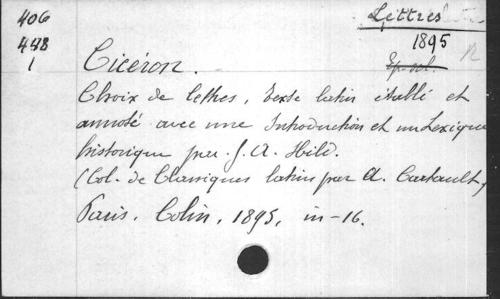 406
448
1
Lettres
1895
Cicéron.
Choix de lettres, texte latin établi et
annoté avec une Introduction et un Lexique
historique par J. A. Hild.
(Col. de Classiques latins par A. Cartault,
Paris, Colin, 1895, in-16.